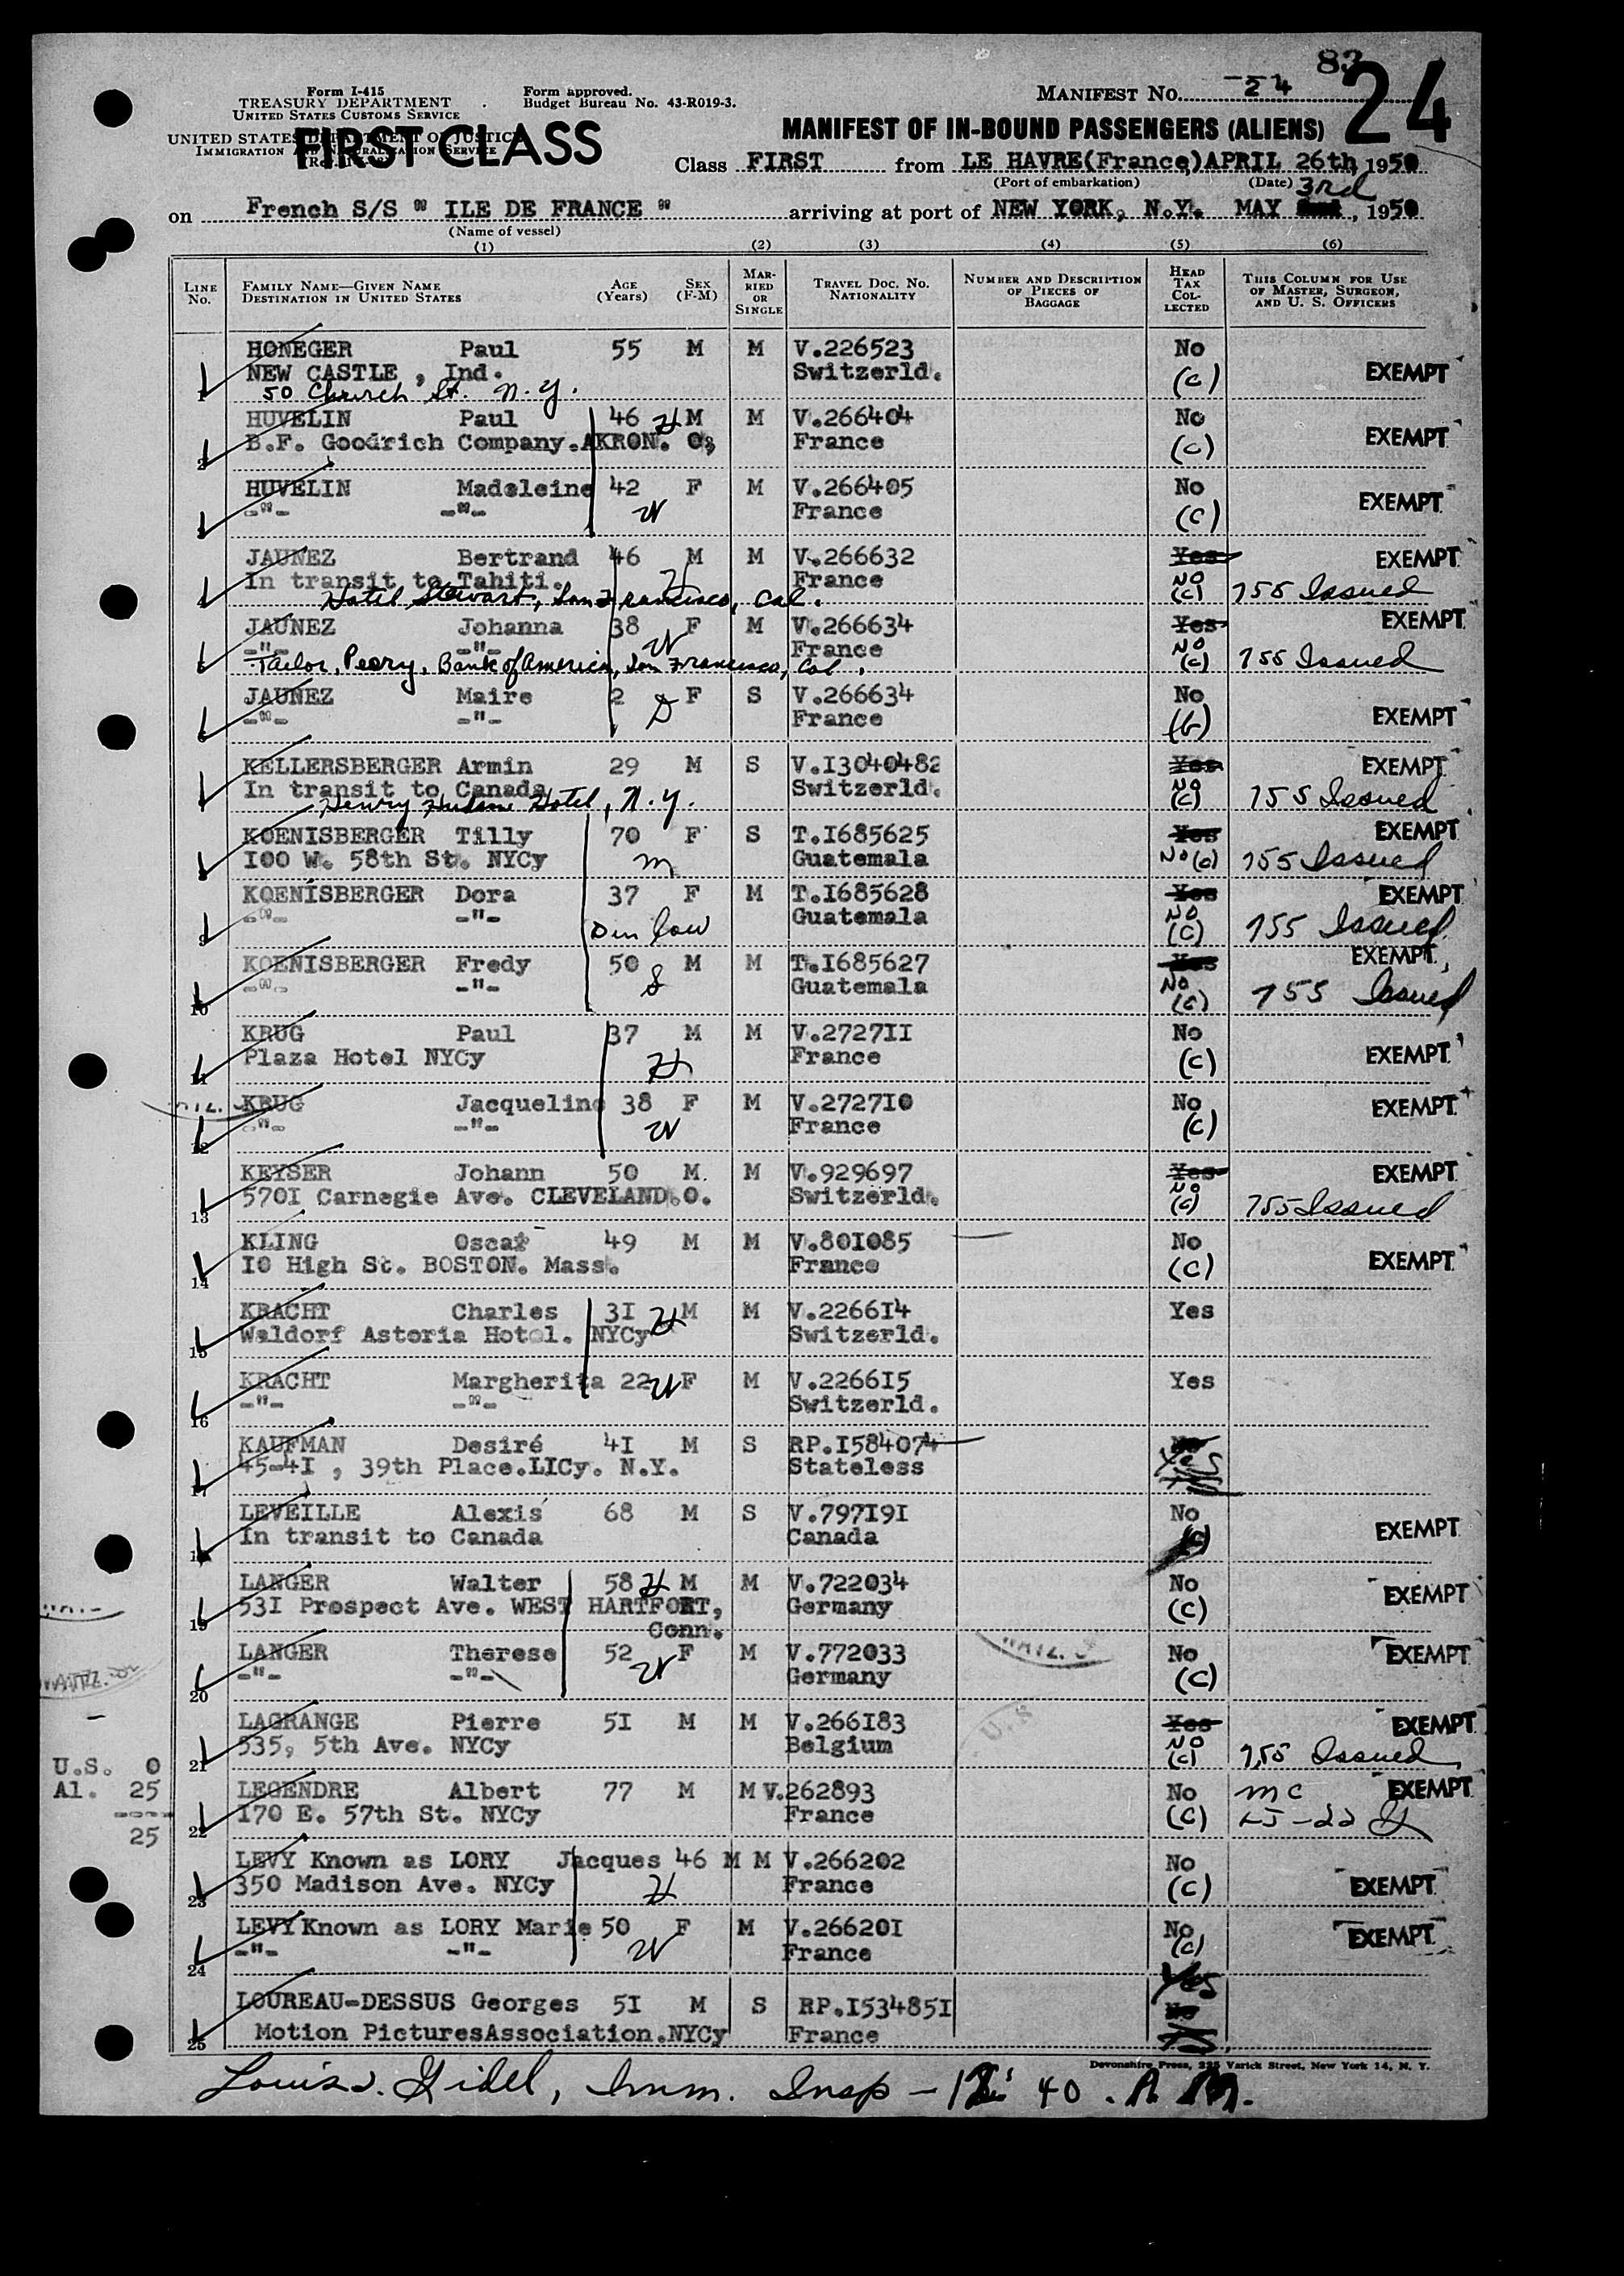 83
24
Form I-415
TREASURY DEPARTMENT
UNITED STATES CUSTOMS SERVICE
UNITED STATES DEPARTMENT OF JUSTICE
IMMIGRATION AND NATURALIZATION SERVICE
FIRST CLASS
Form approved.
Budget Bureau No. 43-R019-3.
MANIFEST No. 24
MANIFEST OF IN-BOUND PASSENGERS (ALIENS)
Class FIRST from LE HAVRE(France,)APRIL 26th, 1950
(Port of embarkation) (Date)
on French S/S " ILE DE FRANCE " arriving at port of NEW YORK, N.Y. MAY 3rd, 1950
(Name of vessel)
(1) (2) (3) (4) (5) (6)
LINE No. FAMILY NAME—GIVEN NAME DESTINATION IN UNITED STATES AGE (Years) SEX (F-M) MARRIED OR SINGLE TRAVEL DOC. NO. NATIONALITY NUMBER AND DESCRIPTION OF PIECES OF BAGGAGE HEAD TAX COLLECTED THIS COLUMN FOR USE OF MASTER, SURGEON, AND U. S. OFFICERS
1 HONEGER Paul 55 M M V.226523 No
NEW CASTLE , Ind. Switzerld. (c) EXEMPT
50 Church St. N.Y.
2 HUVELIN Paul 46 H M M V.266404 No
B.F. Goodrich Company.AKRON. O; France (c) EXEMPT
HUVELIN Madeleine 42 F M V.266405 No
-"- -"- W France (c) EXEMPT
JAUNEZ Bertrand 46 M M V.266632 Yes EXEMPT
In transit to Tahiti. H France NO (c) 755 Issued
Hotel Stewart, San Francisco, Cal.
JAUNEZ Johanna 38 F M V.266634 Yes EXEMPT
-"- -"- W France NO (c) 755 Issued
Tailor, Peory, Bank of America, San Francisco, Cal.
JAUNEZ Maire 2 F S V.266634 No
-"- -"- D France (b) EXEMPT
KELLERSBERGER Armin 29 M S V.I3040482 Yes EXEMPT
In transit to Canada Switzerld. NO (c) 755 Issued
Henry Hudson Hotel, N.Y.
KOENISBERGER Tilly 70 F S T.I685625 Yes EXEMPT
I00 W. 58th St. NYCy m Guatemala No (c) 755 Issued
9 KOENISBERGER Dora 37 F M T.I685628 Yes EXEMPT
-"- -"- D in law Guatemala NO (c) 755 Issued
10 KOENISBERGER Fredy 50 M M T.I685627 Yes EXEMPT
-"- -"- S Guatemala NO (c) 755 Issued
11 KRUG Paul 37 M M V.2727II No
Plaza Hotel NYCy H France (c) EXEMPT
12 KRUG Jacqueline 38 F M V.2727I0 No
-"- -"- W France (c) EXEMPT
13 KEYSER Johann 50 M. M V.929697 Yes EXEMPT
570I Carnegie Ave. CLEVELAND.O. Switzerld. NO (c) 755 Issued
14 KLING Oscar 49 M M V.80I085 No
I0 High St. BOSTON. Mass. France (c) EXEMPT
15 KRACHT Charles 3I H M M V.2266I4 Yes
Waldorf Astoria Hotel. NYCy Switzerld.
16 KRACHT Margherita 22 W F M V.2266I5 Yes
-"- -"- Switzerld.
17 KAUFMAN Desiré 4I M S RP.I584074 Yes
45-4I , 39th Place.LICy. N.Y. Stateless
LEVEILLE Alexis 68 M S V.797I9I No
In transit to Canada Canada (c) EXEMPT
19 LANGER Walter 58 H M M V.722034 No
53I Prospect Ave. WEST HARTFORT, Germany (c) EXEMPT
Conn.
20 LANGER Therese 52 F M V.772033 No
-"- -"- W Germany (c) EXEMPT
21 LAGRANGE Pierre 5I M M V.266I83 Yes EXEMPT
535, 5th Ave. NYCy Belgium NO (c) 755 Issued
22 LEGENDRE Albert 77 M M V.262893 No mc EXEMPT
I70 E. 57th St. NYCy France (c)
23 LEVY Known as LORY Jacques 46 M M V.266202 No
350 Madison Ave. NYCy H France (c) EXEMPT
24 LEVY Known as LORY Marie 50 F M V.26620I No
-"- -"- W France (c) EXEMPT
25 LOUREAU-DESSUS Georges 5I M S RP.I53485I Yes No
Motion PicturesAssociation.NYCy France
U.S. 0
Al. 25
----
25
Devonshire Press, 225 Varick Street, New York 14, N. Y.
Louis J. Gidel, Imm. Insp - 40. A M.